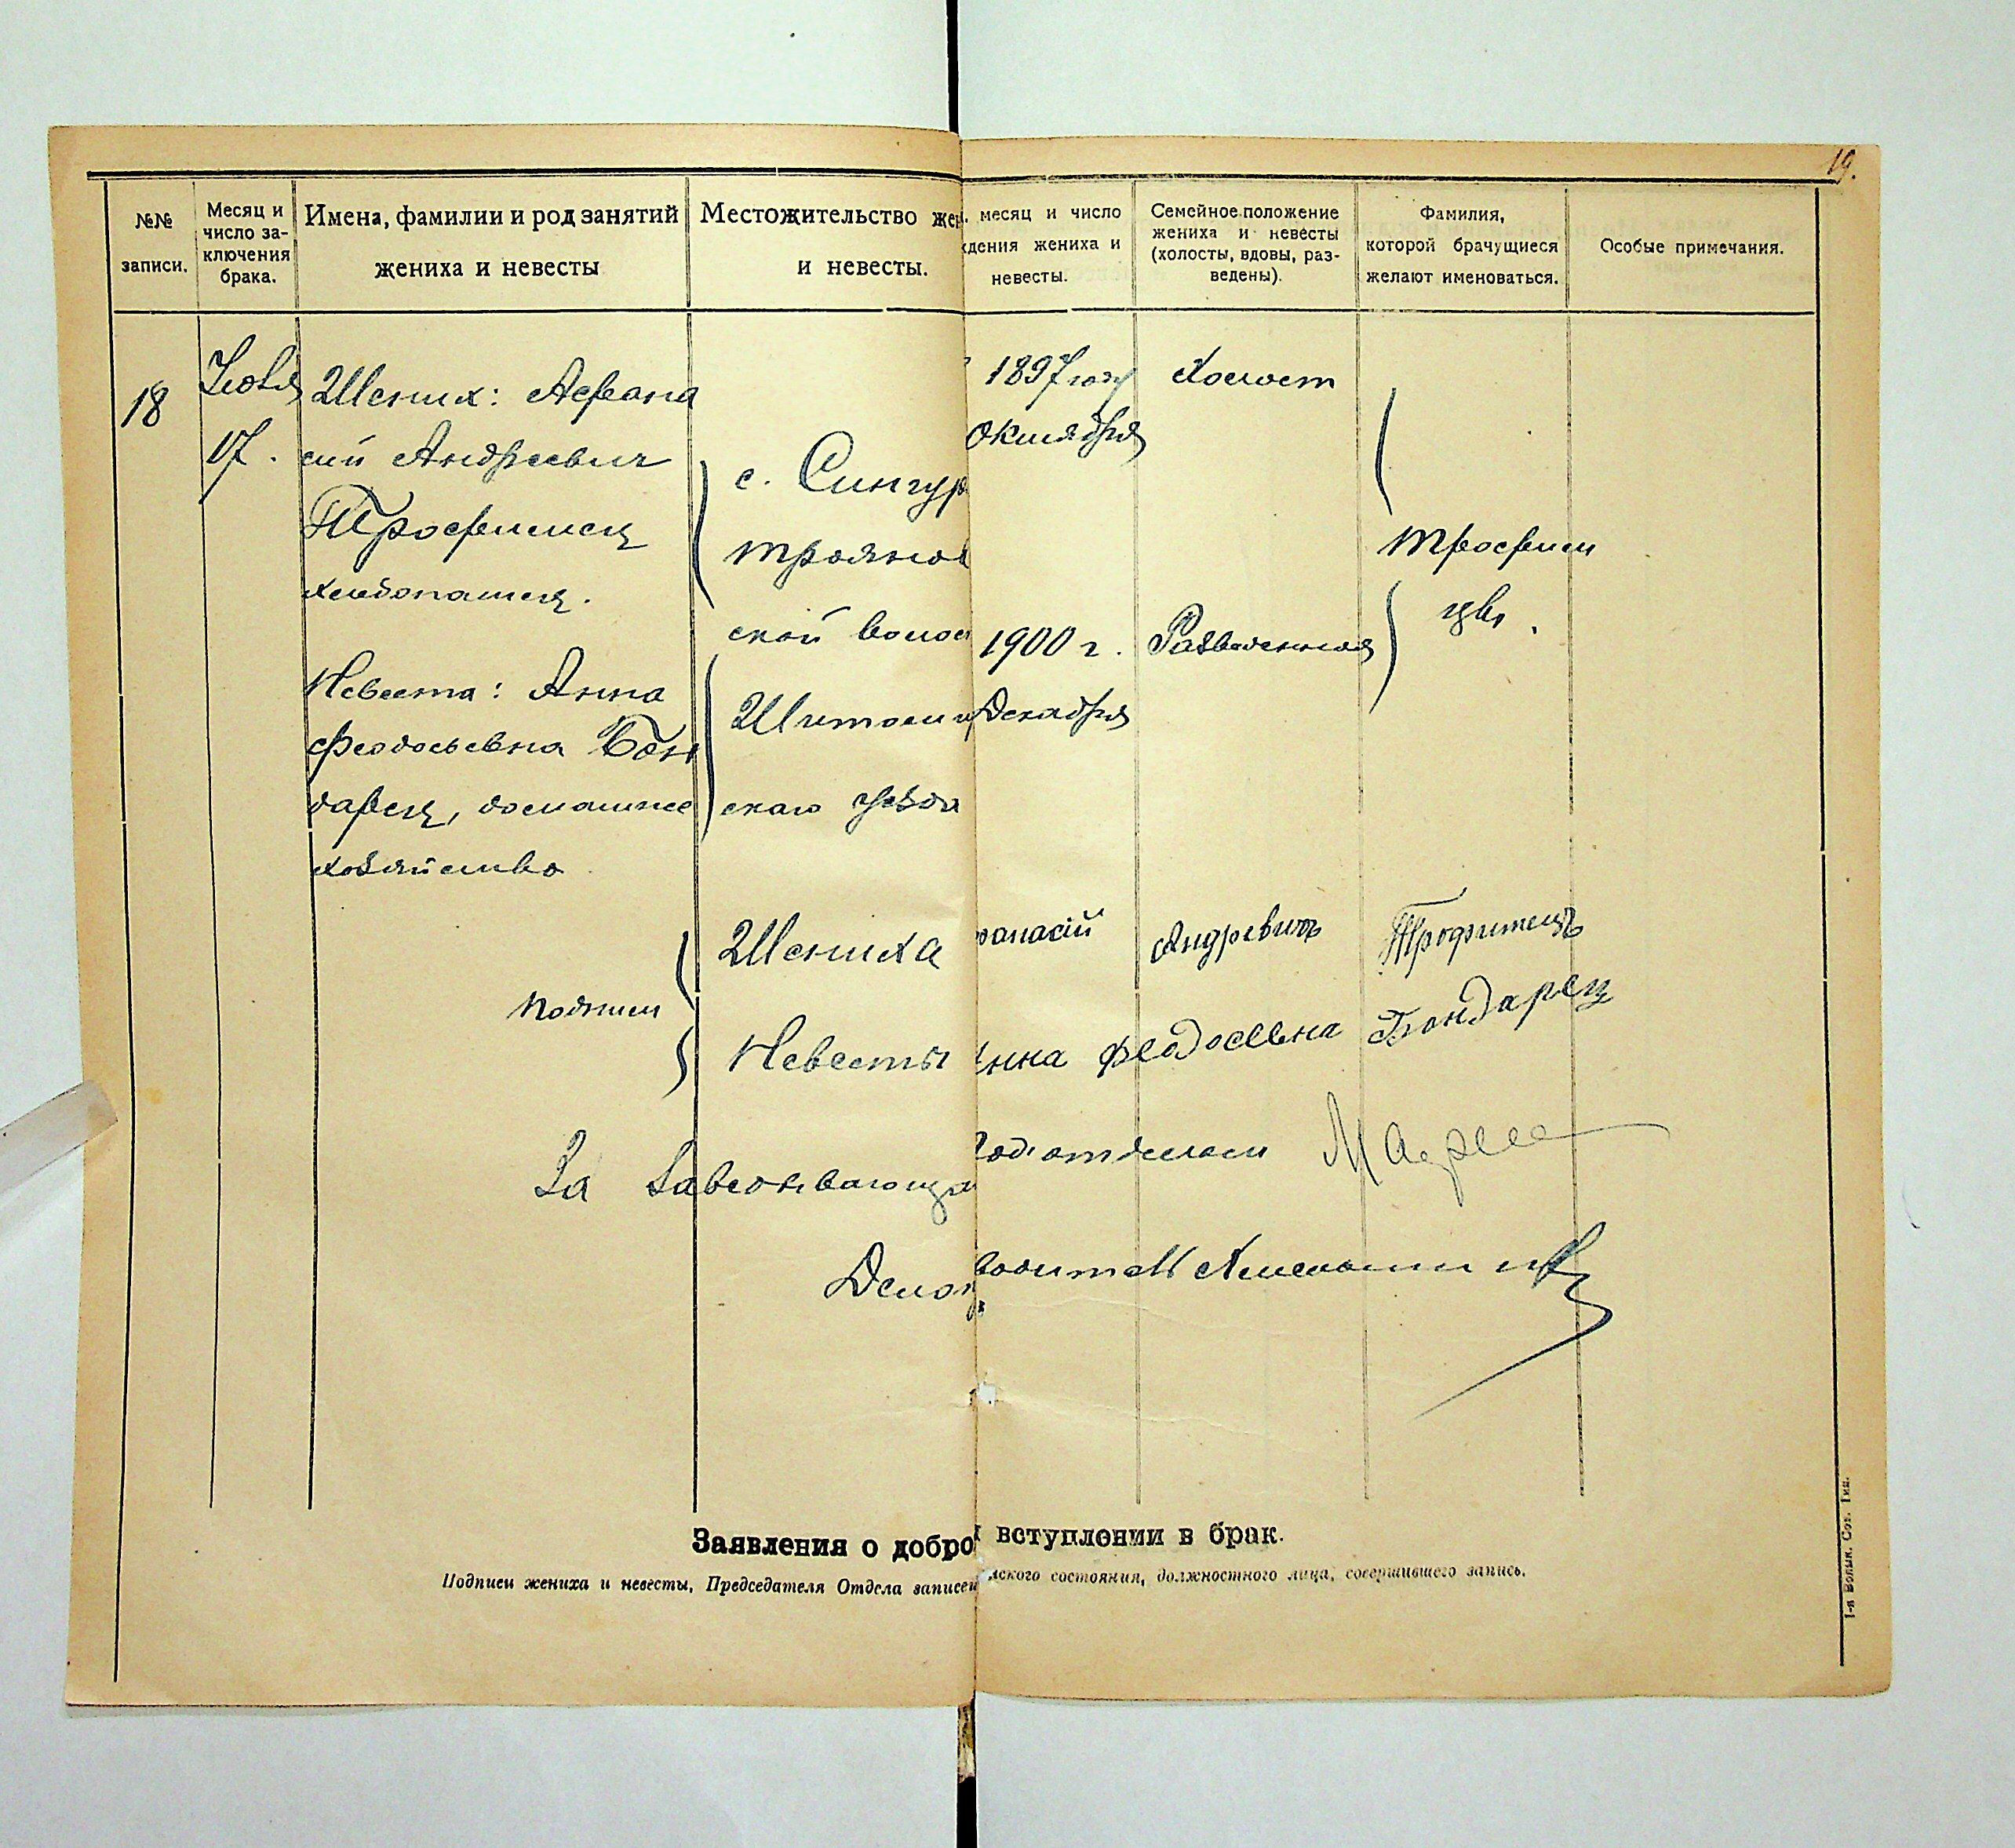 19.
№№ записи.
Месяц и число заключения брака.
Имена, фамилии и род занятий жениха и невесты
Местожительство жен
и невесты.
месяц и число
ждения жениха и
невесты.
Семейное положение
жениха и невесты
(холосты, вдовы, раз-
ведены).
Фамилия,
которой брачущиеся
желают именоваться.
Особые примечания.
18
17.
Жених: Афана
сий Андреевич
Трофимец
хлебопашец.
Невеста: Анна
Феодосьевна Бон
дарец, домашнее
хозяйство
с. Сингур
Троянов
ской волос
Житоми
скаго уезда
1897 году
Октября
1900 г.
Декабря
Холост
Разведенная
Трофим
цы.
Подписи
Жениха
фанасій Андревичъ Трофимецъ
Невесты
Анна Феодосевна Бондарец
За Заведывающа
Подотделом
Дело
водитель
Заявления о добро
вступлении в брак.
Подписи жениха и невесты, Председателя Отдела записей
нского состояния, должностного лица, совершившего запись.
1-я Волын. Сов. Тип.